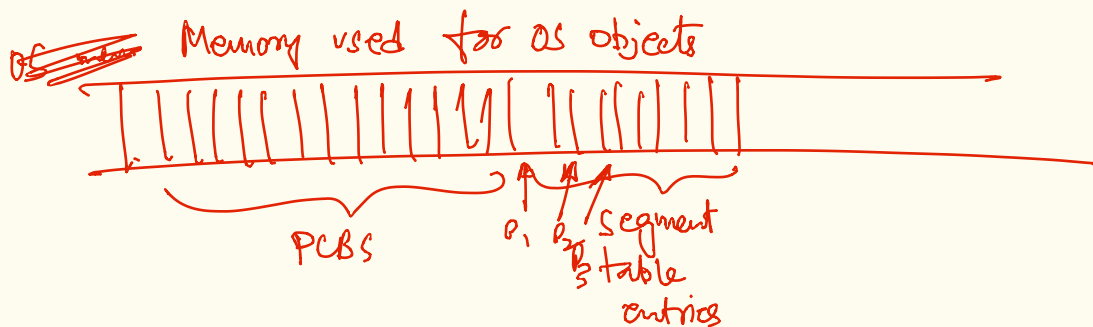 OS
Memory used for OS objects
PCBS
P1 P2 segment
P3 table
entries